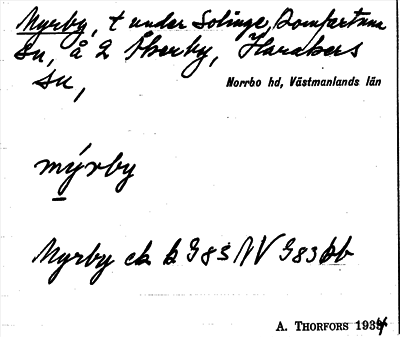 Myrby, t under Solinge, Romfartuna
sn, å 2 Åkerby, Harakers
sn,
Norrbo hd, Västmanlands län
mýrby
Myrby ek b G 85 NV G 83 bb
A. THORFORS 1934